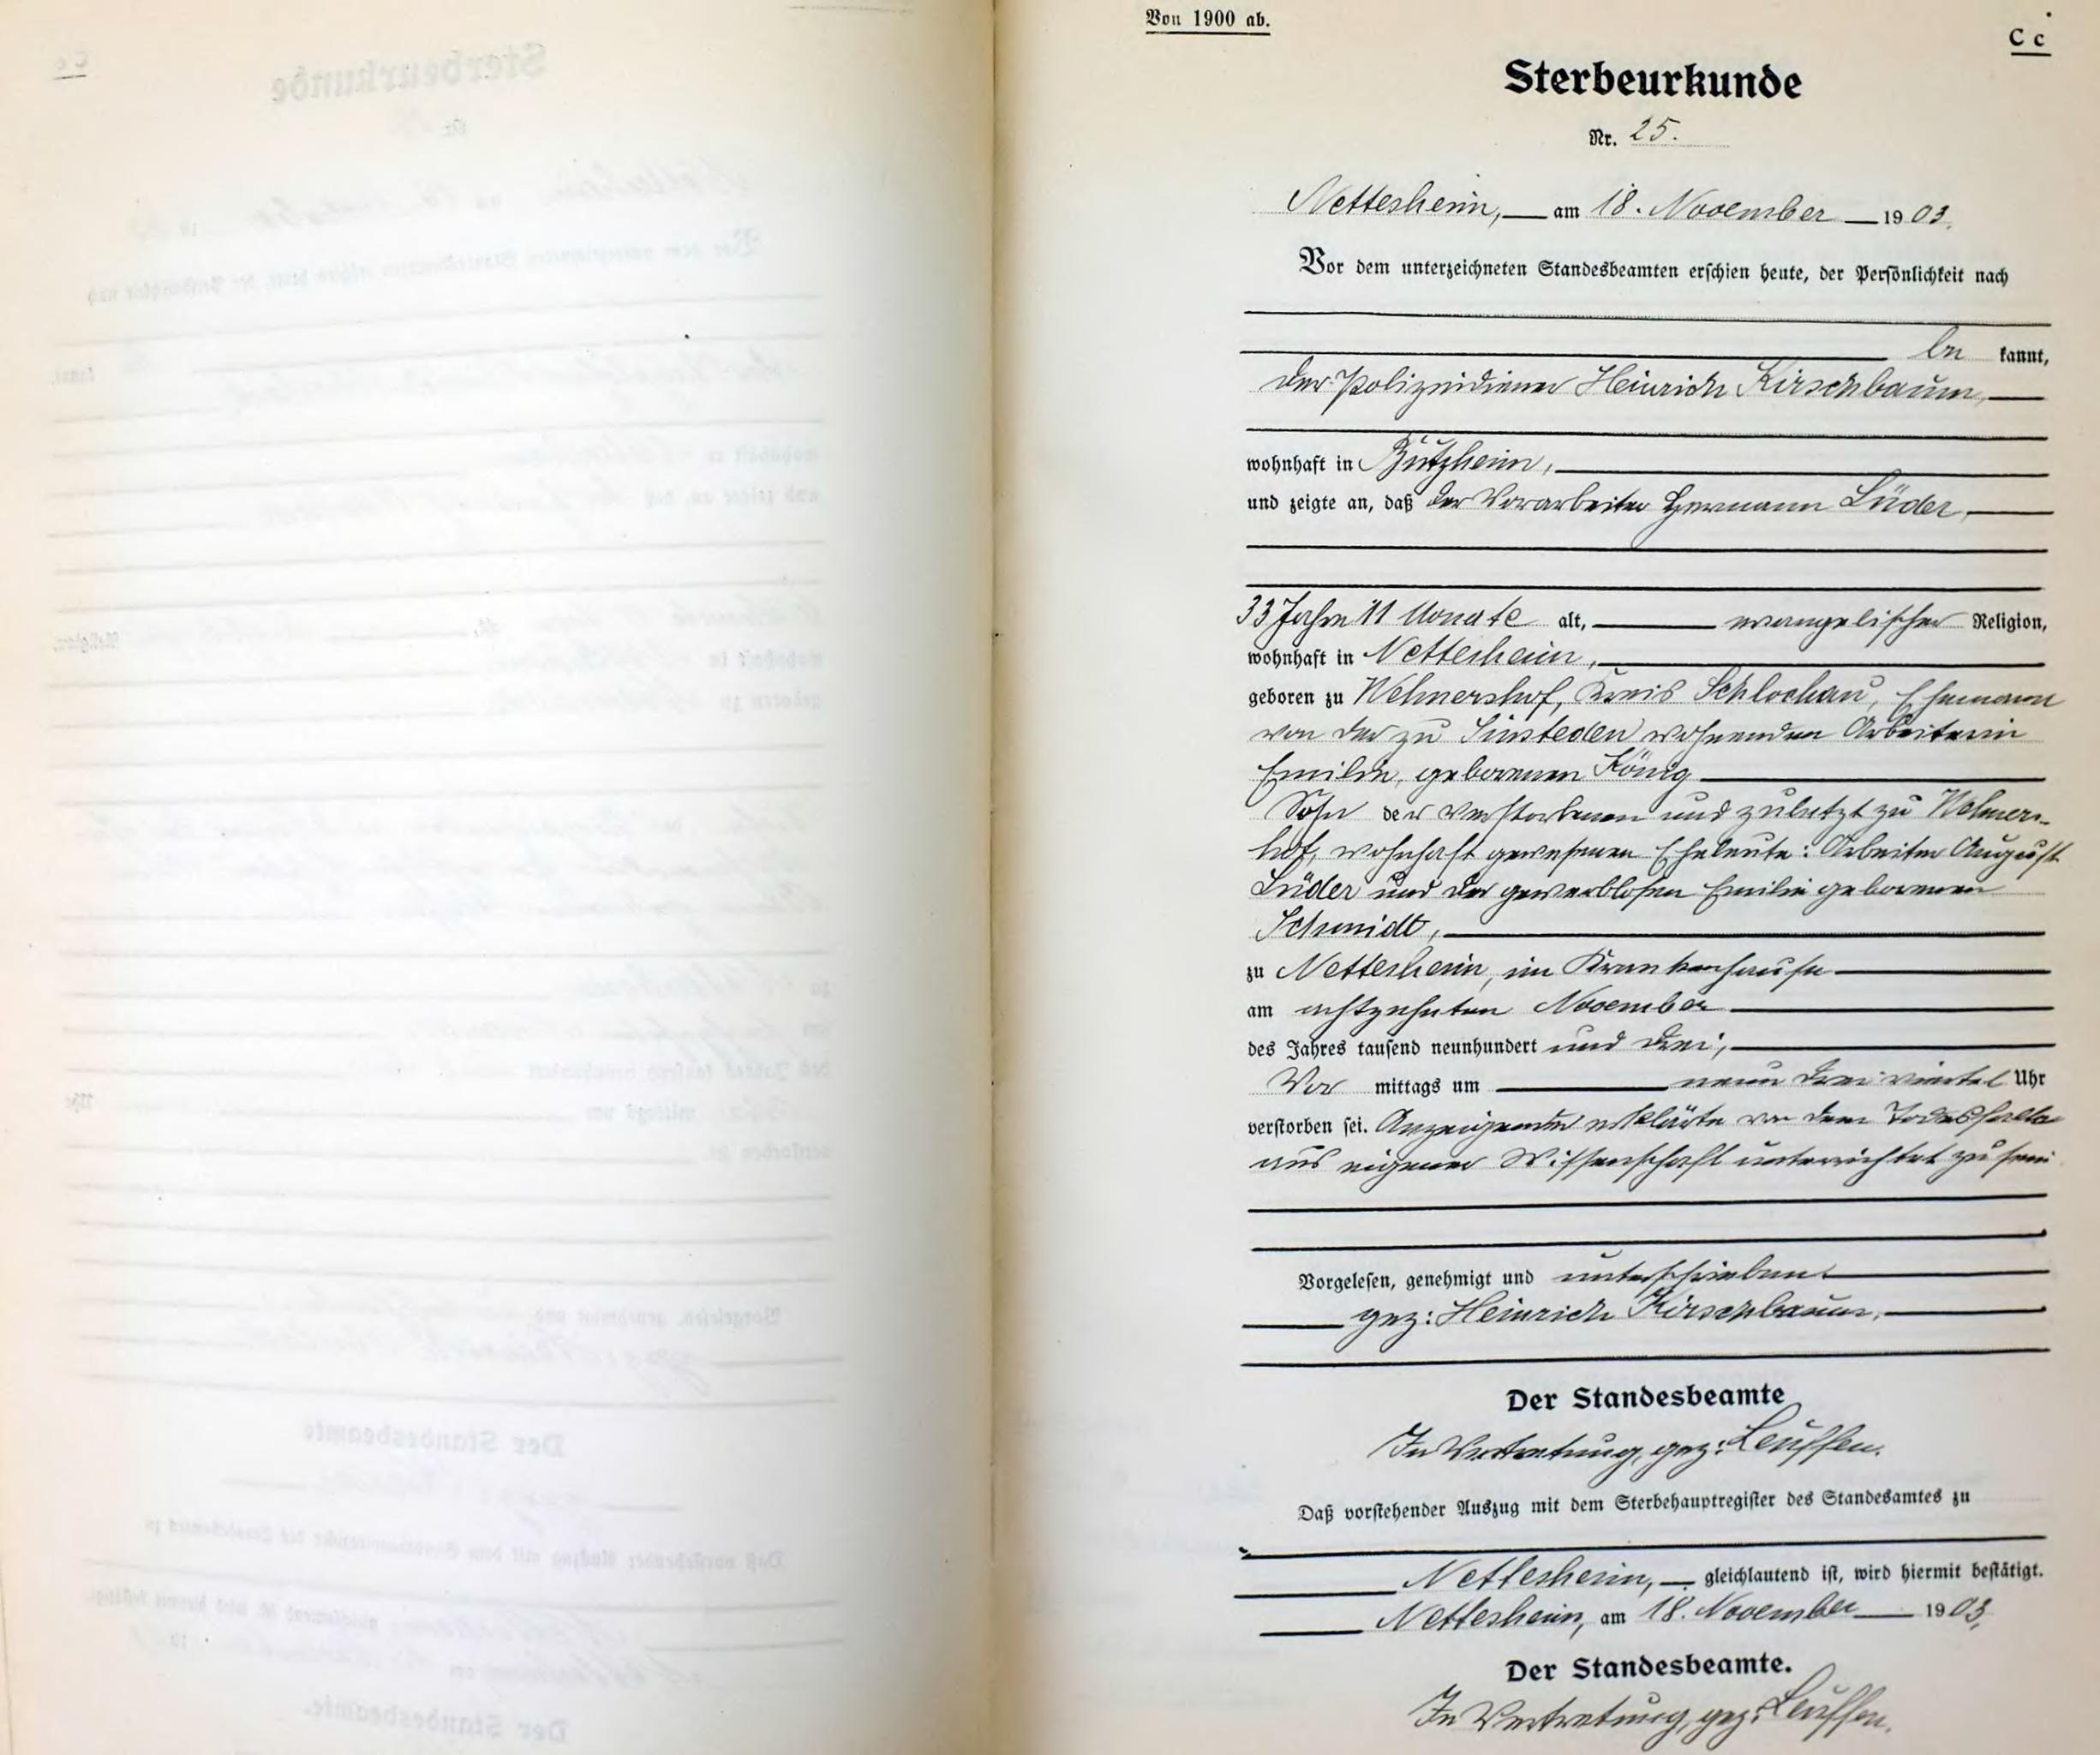 Von 1900 ab.
C c
Sterbeurkunde
Nr. 25.
Nettesheim, am 18. November 1903.
Vor dem unterzeichneten Standesbeamten erschien heute, der Persönlichkeit nach
be kannt,
der Polizeidiener Heinrich Kirschbaum,
wohnhaft in Butzheim,
und zeigte an, daß der Vorarbeiter Hermann Lüder,
33 Jahre 11 Monate alt, evangelischer Religion,
wohnhaft in Nettesheim,
geboren zu Welmershof, Kreis Schlochau, Ehemann
von der zu Sinsteden wohnenden Arbeiterin
Emilie, geborenen König
Sohn der verstorbenen und zuletzt zu Welmers-
hof, wohnhaft gewesenen Eheleute: Arbeiter August
Lüder und der gewerblosen Emilie geborenen
Schmidt,
zu Nettesheim, im Krankenhause
am achtzehnten November
des Jahres tausend neunhundert und drei,
Vor mittags um neun drei viertel Uhr
verstorben sei. Anzeigender erklärte von dem Todesfalle
aus eigener Wissenschaft unterrichtet zu sein
Vorgelesen, genehmigt und unterschrieben
gez: Heinrich Kirschbaum.
Der Standesbeamte
In Vertretung, gez: Leuffen.
Daß vorstehender Auszug mit dem Sterbehauptregister des Standesamtes zu
Nettesheim, gleichlautend ist, wird hiermit bestätigt.
Nettesheim, am 18. November 1903.
Der Standesbeamte.
In Vertretung, gez: Leuffen.